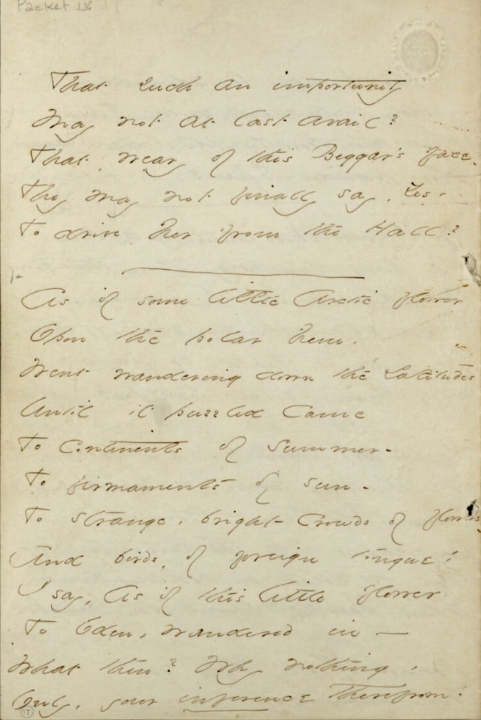 Packet IX
That such an importunity
May not at last avail?
That, weary of this Beggar's face,
They may not finally say, Yes -
To drive her from the Hall?
As if some little Arctic flower
Upon the polar hem -
Went wandering down the Latitudes
Until it puzzled came
To Continents of summer -
To firmaments of sun -
To strange, bright crowds of flowers -
And birds, of foreign tongue!
I say, As if this little flower
To Eden, wandered in -
What then? Why nothing,
Only, your inference therefrom!